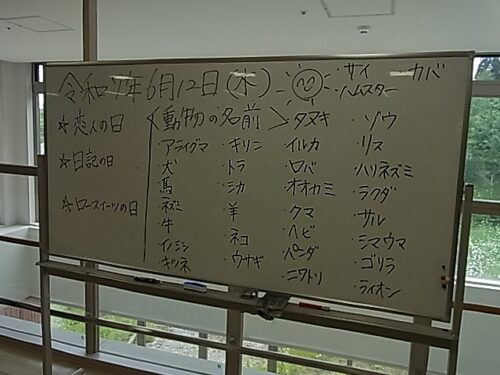 令和7年6月12日(木)
・サイ ・カバ
・ハムスター
☆恋人の日
☆日記の日
☆ロースイーツの日
<動物の名前>
・アライグマ
・犬
・馬
・ネズミ
・牛
・イノシシ
・キツネ
・キリン
・トラ
・シカ
・羊
・ネコ
・ウサギ
・タヌキ
・イルカ
・ロバ
・オオカミ
・クマ
・ヘビ
・パンダ
・ニワトリ
・ゾウ
・リス
・ハリネズミ
・ラクダ
・サル
・シマウマ
・ゴリラ
・ライオン